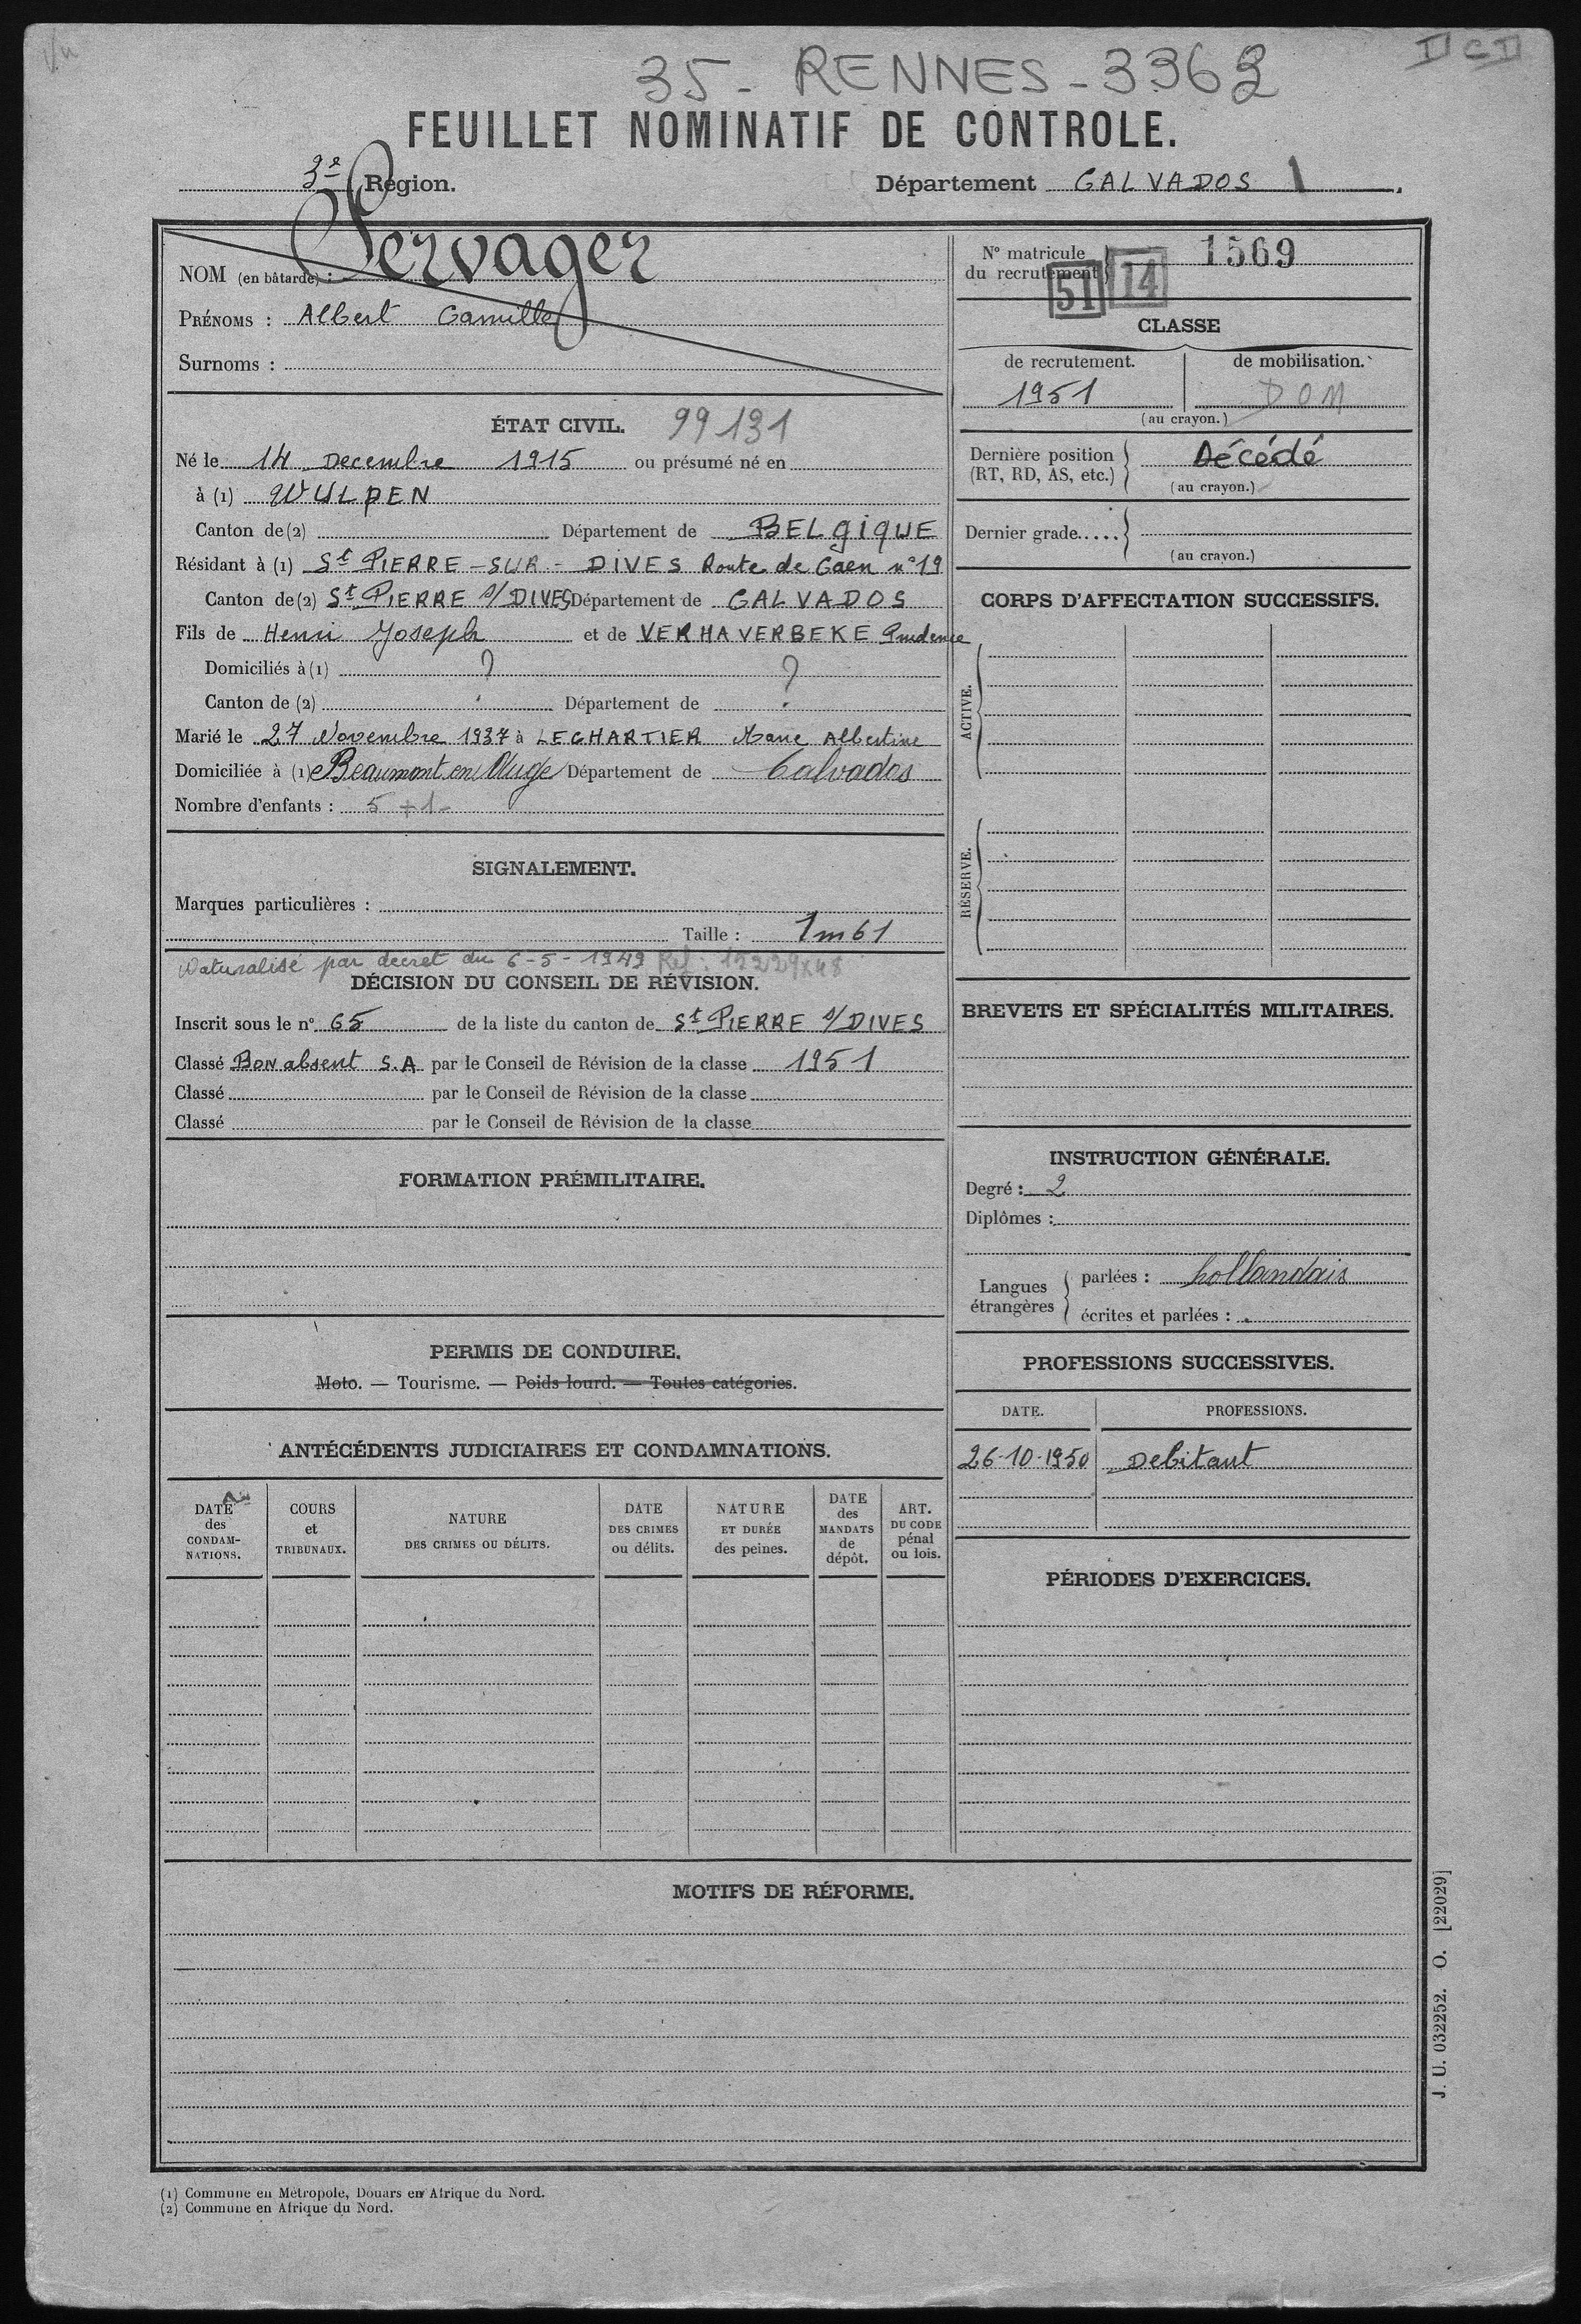 35 - RENNES - 3363
FEUILLET NOMINATIF DE CONTROLE.
3e Région.
Département CALVADOS 1
NOM (en bâtarde) : Pervager
PRÉNOMS : Albert Camille
Surnoms :
ÉTAT CIVIL. 99131
Né le 14 Decembre 1915 ou présumé né en
à (1) WULPEN
Canton de (2) Département de BELGIQUE
Résidant à (1) St PIERRE-SUR-DIVES Route de Caen n° 19
Canton de (2) St PIERRE s/DIVES Département de CALVADOS
Fils de Henri Joseph et de VERHAVERBEKE Prudence
Domiciliés à (1) ? ?
Canton de (2) Département de
Marié le 27 Novembre 1937 à LECHARTIER Marie Albertine
Domiciliée à (1) Beaumont en Auge Département de Calvados
Nombre d'enfants : 5 + 1
SIGNALEMENT.
Marques particulières :
Taille : 1m61
Naturalisé par décret du 6-5-1949 Ref :
DÉCISION DU CONSEIL DE RÉVISION.
Inscrit sous le n° 65 de la liste du canton de St PIERRE s/DIVES
Classé Bon absent S.A par le Conseil de Révision de la classe 1951
Classé par le Conseil de Révision de la classe
Classé par le Conseil de Révision de la classe
FORMATION PRÉMILITAIRE.
PERMIS DE CONDUIRE.
Moto. — Tourisme. — Poids lourd. — Toutes catégories.
ANTÉCÉDENTS JUDICIAIRES ET CONDAMNATIONS.
DATE des CONDAMNATIONS.
COURS et TRIBUNAUX.
NATURE DES CRIMES OU DÉLITS.
DATE DES CRIMES ou délits.
NATURE ET DURÉE des peines.
DATE des MANDATS de dépôt.
ART. DU CODE pénal ou lois.
N° matricule du recrutement 1569
51 14
CLASSE
de recrutement. de mobilisation.
1951 DOM
(au crayon.)
Dernière position (RT, RD, AS, etc.) Décédé
(au crayon.)
Dernier grade.....
(au crayon.)
CORPS D'AFFECTATION SUCCESSIFS.
ACTIVE.
RÉSERVE.
BREVETS ET SPÉCIALITÉS MILITAIRES.
INSTRUCTION GÉNÉRALE.
Degré : 2
Diplômes :
Langues étrangères
parlées : hollandais
écrites et parlées :
PROFESSIONS SUCCESSIVES.
DATE. PROFESSIONS.
26-10-1950 Debitant
PÉRIODES D'EXERCICES.
MOTIFS DE RÉFORME.
J. U. 032252. O. [22029]
(1) Commune en Métropole, Douars en Afrique du Nord.
(2) Commune en Afrique du Nord.